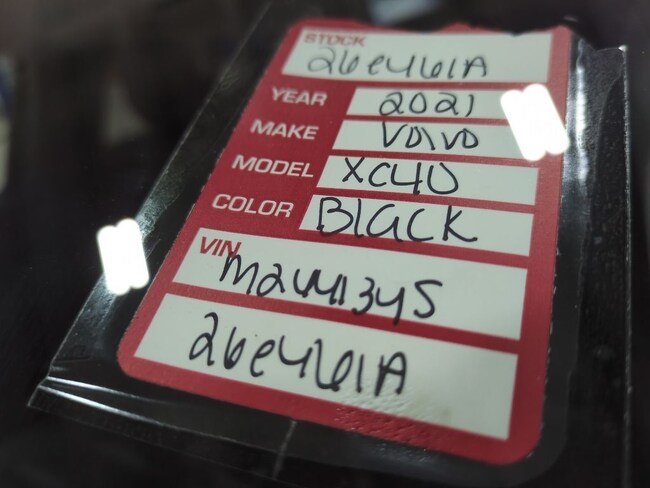 STOCK 26e461A
YEAR 2021
MAKE VOLVO
MODEL XC40
COLOR BLACK
VIN M2441345
26e461A